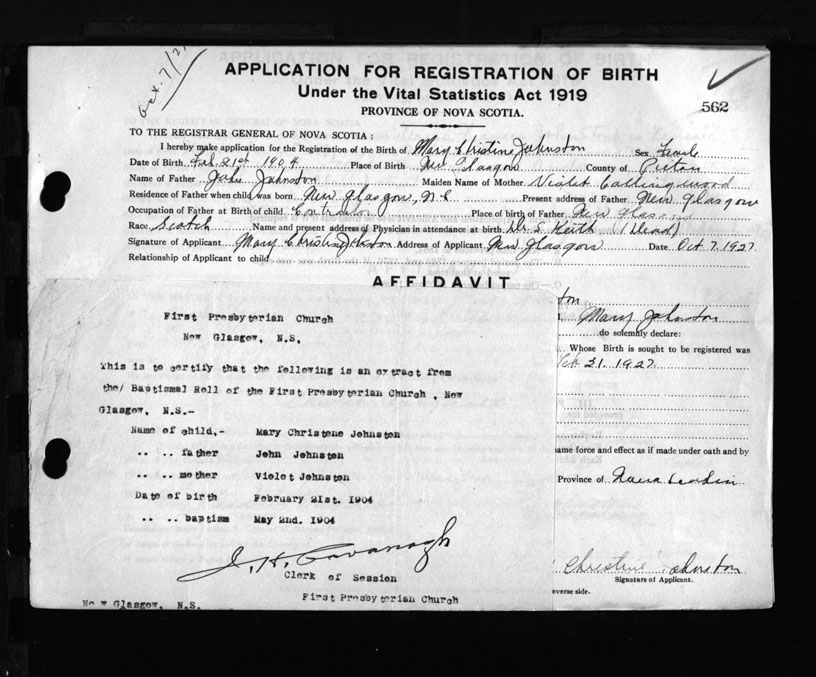 Oct. 7/27
APPLICATION FOR REGISTRATION OF BIRTH
Under the Vital Statistics Act 1919
562
PROVINCE OF NOVA SCOTIA.
TO THE REGISTRAR GENERAL OF NOVA SCOTIA :
I hereby make application for the Registration of the Birth of Mary Christine Johnston Sex Female
Date of Birth Feb. 21st 1904 Place of Birth New Glasgow County of Pictou
Name of Father John Johnston Maiden Name of Mother Violet Collingwood
Residence of Father when child was born New Glasgow, N.S Present address of Father New Glasgow
Occupation of Father at Birth of child Contractor Place of birth of Father New Glasgow
Race Scotch Name and present address of Physician in attendance at birth Dr. S. Keith (Dead)
Signature of Applicant Mary Christine Johnston Address of Applicant New Glasgow Date Oct 7, 1927
Relationship of Applicant to child
AFFIDAVIT
First Presbyterian Church
New Glasgow, N.S.
This is to certify that the following is an extract from
the/ Baptismal Roll of the First Presbyterian Church , New
Glasgow, N.S.-
Name of child,- Mary Christene Johnston
.. .. father John Johnston
.. .. mother Violet Johnston
Date of birth February 21st. 1904
.. .. baptism May 2nd. 1904
J. H. Cavanagh
Clerk of Session
First Presbyterian Church
New Glasgow, N.S.
ton
I, Mary Johnston
do solemnly declare:
Whose Birth is sought to be registered was
21. 1927
ame force and effect as if made under oath and by
Province of Nova Scotia
Christine Johnston
Signature of Applicant.
everse side.